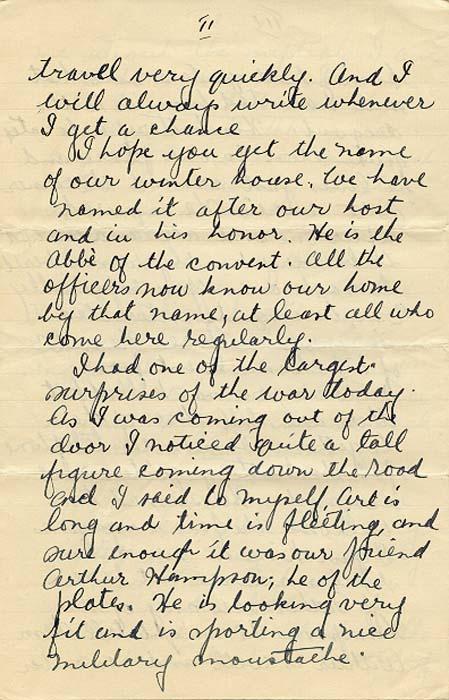 II
travel very quickly. And I
will always write whenever
I get a chance
I hope you get the name
of our winter house. We have
named it after our host
and in his honor. He is the
Abbè of the convent. All the
officers now know our home
by that name, at least all who
come here regularly.
I had one of the largest
surprises of the war today.
As I was coming out of the
door I noticed quite a tall
figure coming down the road
and I said to myself Art is
long and time is fleeting, and
sure enough it was our friend
Arthur Hampson; he of the
plates. He is looking very
fit and is sporting a nice
military moustache.